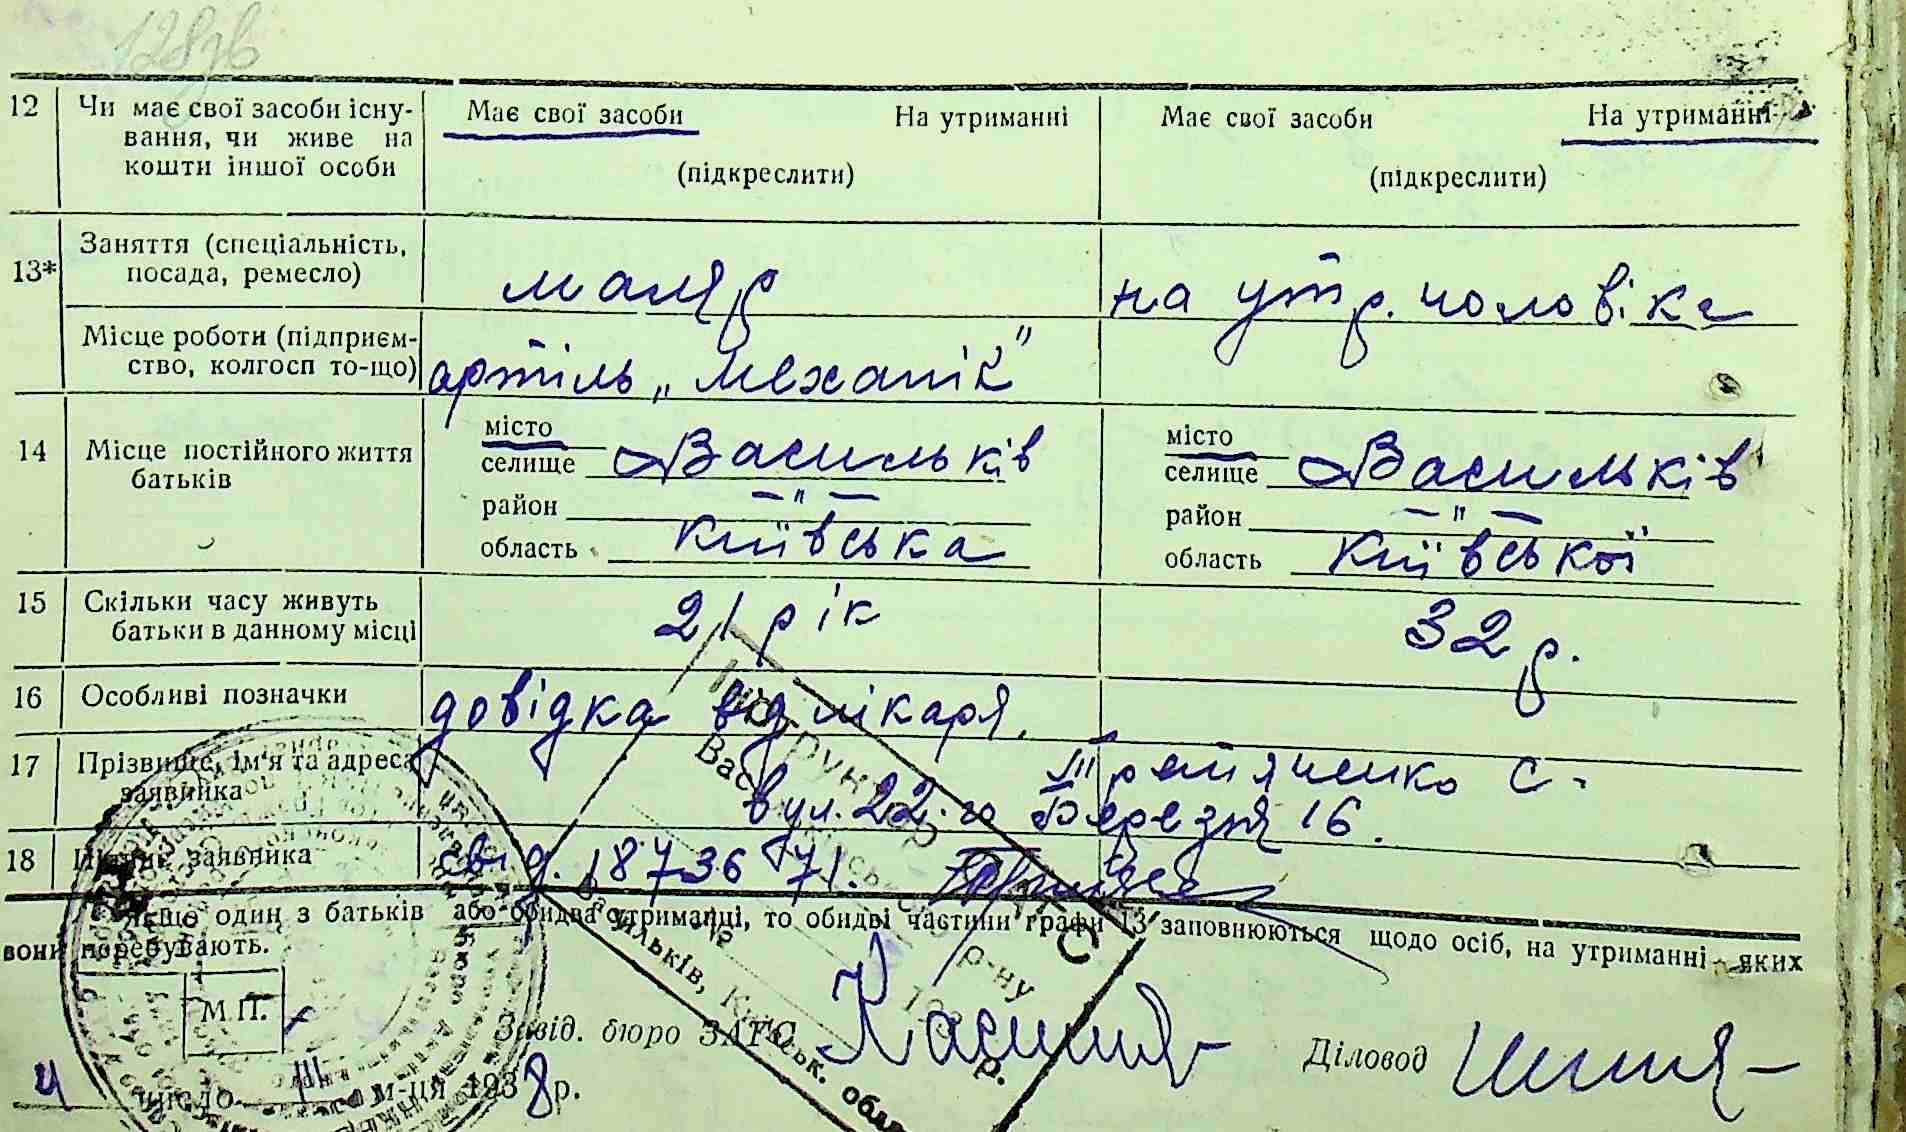 128 зв
12 Чи має свої засоби існу- Має свої засоби На утриманні Має свої засоби На утриманні
вання, чи живе на
кошти іншої особи (підкреслити) (підкреслити)
Заняття (спеціальність,
13* посада, ремесло) маляр на утр. чоловіка
Місце роботи (підприєм-
ство, колгосп то-що) артіль „Механік"
місто місто
14 Місце постійного життя селище Васильків селище Васильків
батьків район —"— район —"—
область Київська область Київської
15 Скільки часу живуть 21 рік 32 р.
батьки в данному місці
16 Особливі позначки довідка від лікаря.
17 Прізвище, ім'я та адреса С.
заявника вул. 22-го Березня 16.
18 Підпис заявника 18736
Якщо один з батьків або обидва утриманці, то обидві частини графи 13 заповнюються щодо осіб, на утриманні яких
вони перебувають.
Інструктор
ЗАГС
Васильківського р-ну
193 р.
м. Васильків, Київськ. обл.
М.П.
Завід. бюро ЗАГС Діловод
4 число III м-ця 1938 р.